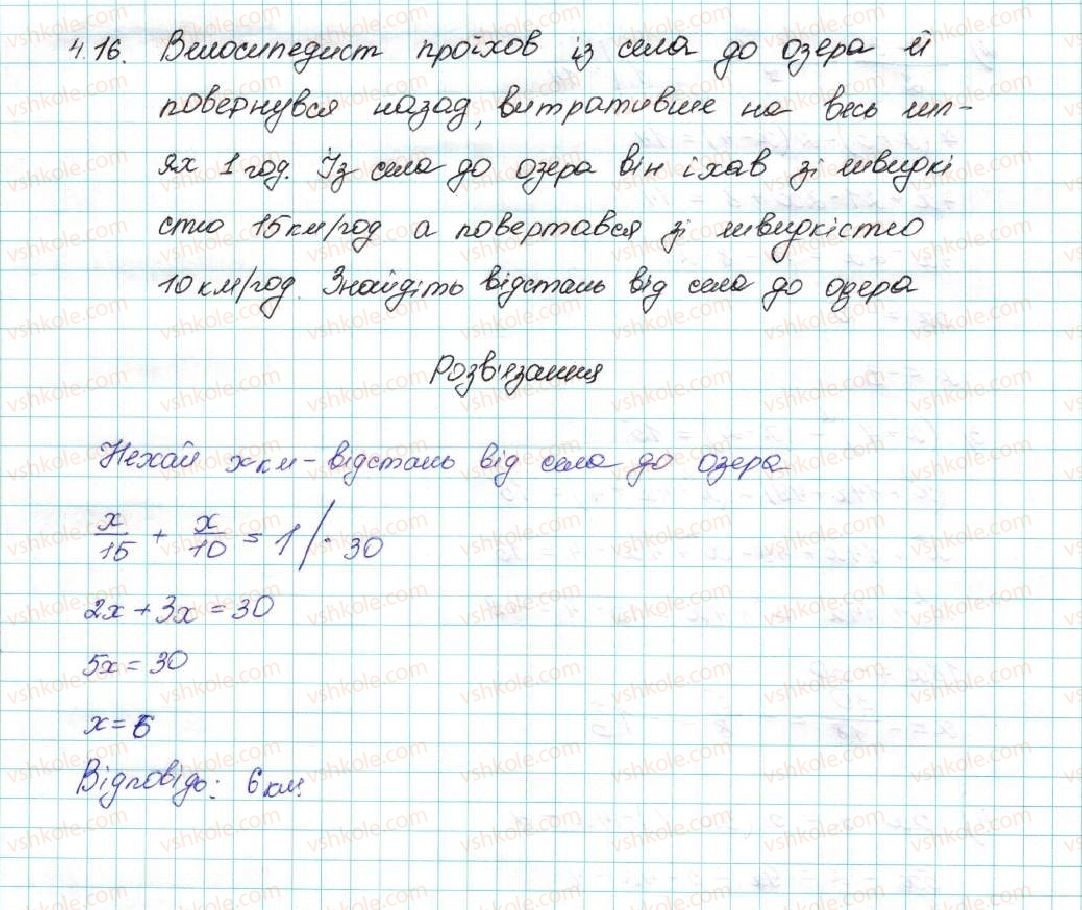 4.16. Велосипедист проїхов із села до озера й
повернувся назад, витративше на весь шл-
ях 1 год. Із села до озера він їхав зі швидкі
стю 15 км/год а повертався зі швидкістю
10 км/год. Знайдіть відстань від села до озера
Розв'язання
Нехай x км - відстань від села до озера
x/15 + x/10 = 1 /· 30
2x + 3x = 30
5x = 30
x = 6
Відповідь: 6 км.